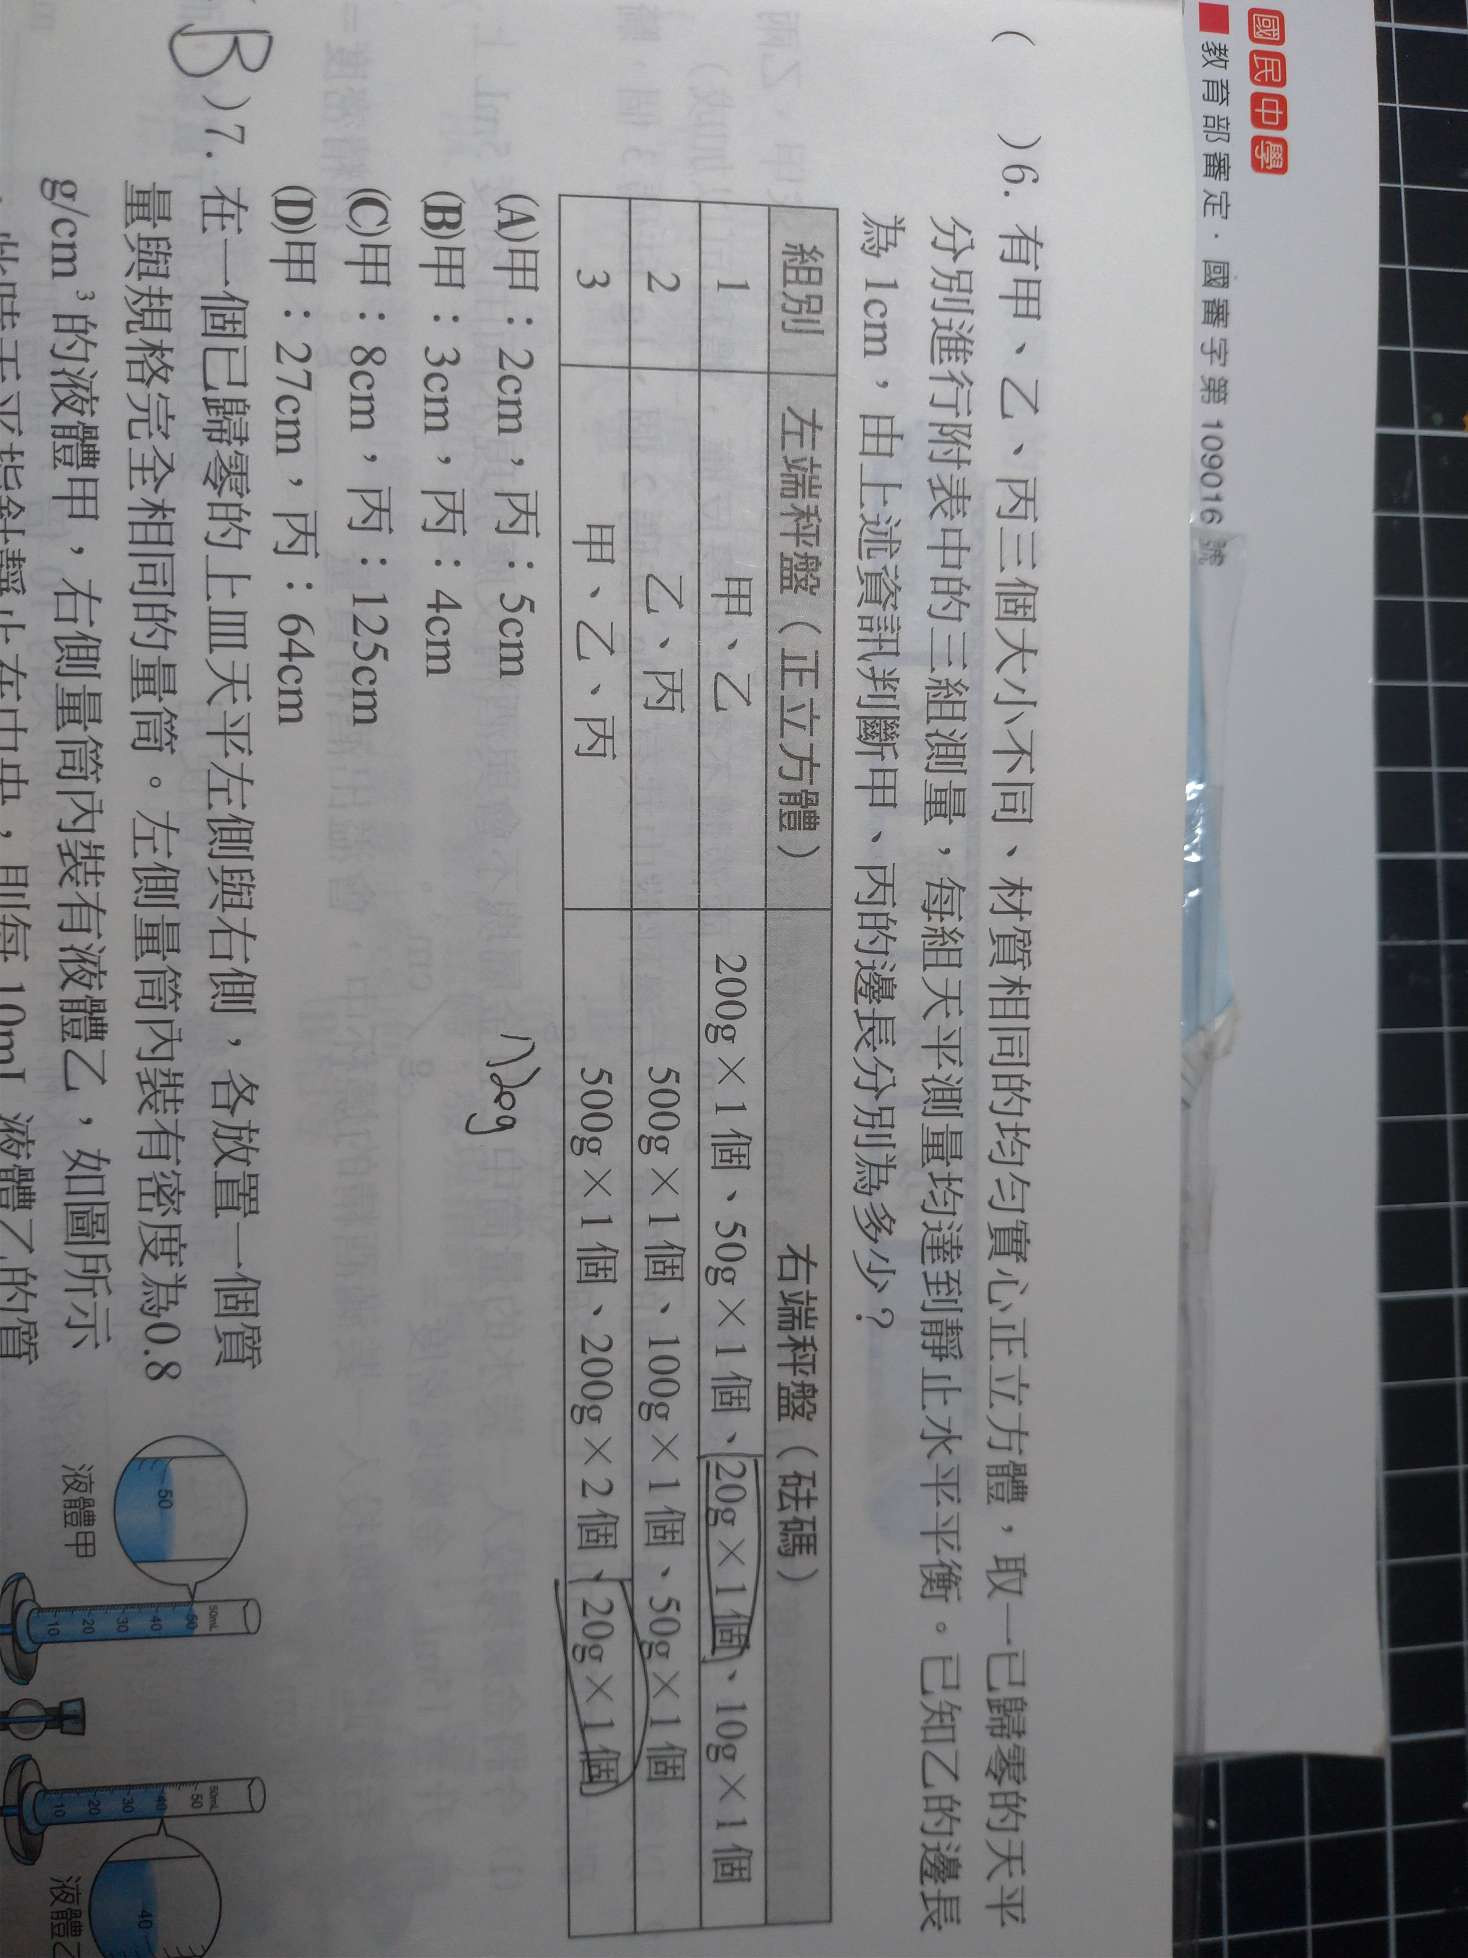 國民中學
教育部審定.國審字第109016號
( )6. 有甲、乙、丙三個大小不同、材質相同的均勻實心正立方體，取一已歸零的天平
分別進行附表中的三組測量，每組天平測量均達到靜止水平平衡。已知乙的邊長
為1cm，由上述資訊判斷甲、丙的邊長分別為多少？
組別 左端秤盤（正立方體） 右端秤盤（砝碼）
1 甲、乙 200g×1個、50g×1個、20g×1個、10g×1個
2 乙、丙 500g×1個、100g×1個、50g×1個
3 甲、乙、丙 500g×1個、200g×2個、20g×1個
(A)甲：2cm，丙：5cm
(B)甲：3cm，丙：4cm
(C)甲：8cm，丙：125cm
(D)甲：27cm，丙：64cm
B )7. 在一個已歸零的上皿天平左側與右側，各放置一個質
量與規格完全相同的量筒。左側量筒內裝有密度為0.8
g/cm³的液體甲，右側量筒內裝有液體乙，如圖所示
，此時天平指針靜止在中央，則每10mL液體乙的質
50
液體甲
50mL
50
40
30
20
10
50mL
50
40
30
20
10
40
液體乙